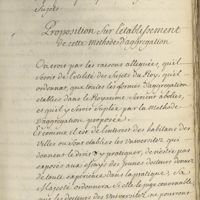 sujets.
Proposition sur l'etablissement
de cette methode d'aggregation
On croit par les raisons alleguées, qu'il
seroit de l'utilité des sujets du Roy, qu'il
ordonnat, que toutes les formes d'aggregation
établies dans le Royaume seroient abolies,
et qu'il y seroit suplée par la methode
d'aggregation proposée.
Et comme il est de l'interest des habitans des
Villes ou sont établies les Universitez qui
donnent le droit d'y pratiquer, de n'estre pas
exposé aux essays des jeunes docteurs denuez
de toute experience dans la pratique; Sa
Majesté ordonnera si elle le juge convenable
que les docteurs des Universitez ne pourront